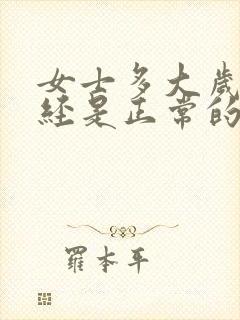 女士多大岁
经是正常的
羅本平